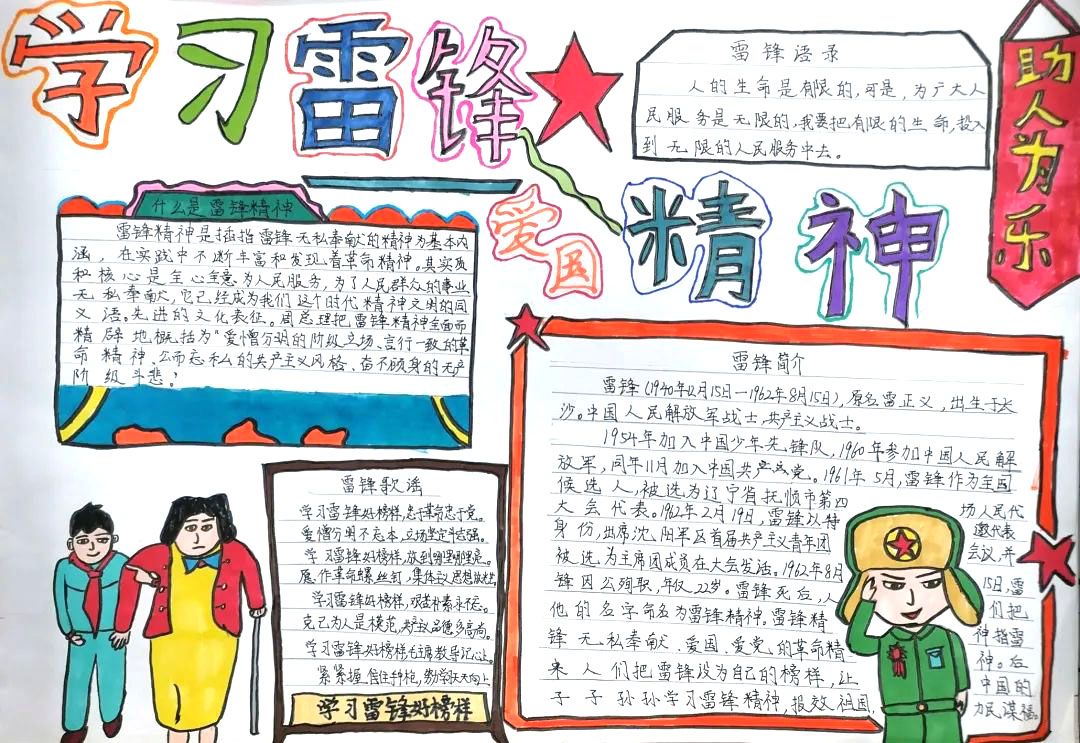 学习雷锋
精神
爱国
助人为乐
雷锋语录
人的生命是有限的,可是,为广大人
民服务是无限的,我要把有限的生命,投入
到无限的人民服务中去。
什么是雷锋精神
雷锋精神是指雷锋无私奉献的精神为基本内
涵,在实践中不断丰富和发现着革命精神。其实质
和核心是全心全意为人民服务,为了人民群众的事业
无私奉献,它已经成为我们这个时代精神文明的同
义语。先进的文化表征。周总理把雷锋精神全面而
精辟地概括为“爱憎分明的阶级立场、言行一致的革
命精神、公而忘私的共产主义风格、奋不顾身的无产
阶级斗悲!
雷锋歌谣
学习雷锋好榜样,忠于革命忠于党。
爱憎分明不忘本,立场坚定斗志强。
学习雷锋好榜样,放到哪里哪里
作革命螺丝钉,集体主义思想放
学习雷锋好榜样,艰苦朴素永不忘。
克己为人是模范,共产品德多高尚。
学习雷锋好榜样毛主席教导记心上
紧紧握 手枪,努力学天天向上
学习雷锋好榜样
雷锋简介
雷锋(1940年12月15日—1962年8月15日),原名雷正义,出生于长
沙。中国人民解放军战士,共产主义战士。
1954年加入中国少年先锋队,1960年参加中国人民解
放军,同年11月加入中国共产党。1961年5月,雷锋作为全国
候选人,被选为辽宁省抚顺市第四 场人民代
大会代表。1962年2月19日,雷锋以特 邀代表
身份,出席沈阳军区首届共产主义青年团 会议,并
被选为主席团成员在大会发活。1962年8月 15日,雷
锋因公殉职,年仅22岁。雷锋死后,人 们把
他的名字命名为雷锋精神。雷锋精 神指雷
锋无私奉献、爱国、爱党的革命精 神。后
来人们把雷锋设为自己的榜样,让 中国的
子子孙孙学习雷锋精神,报效祖国, 力民谋福。